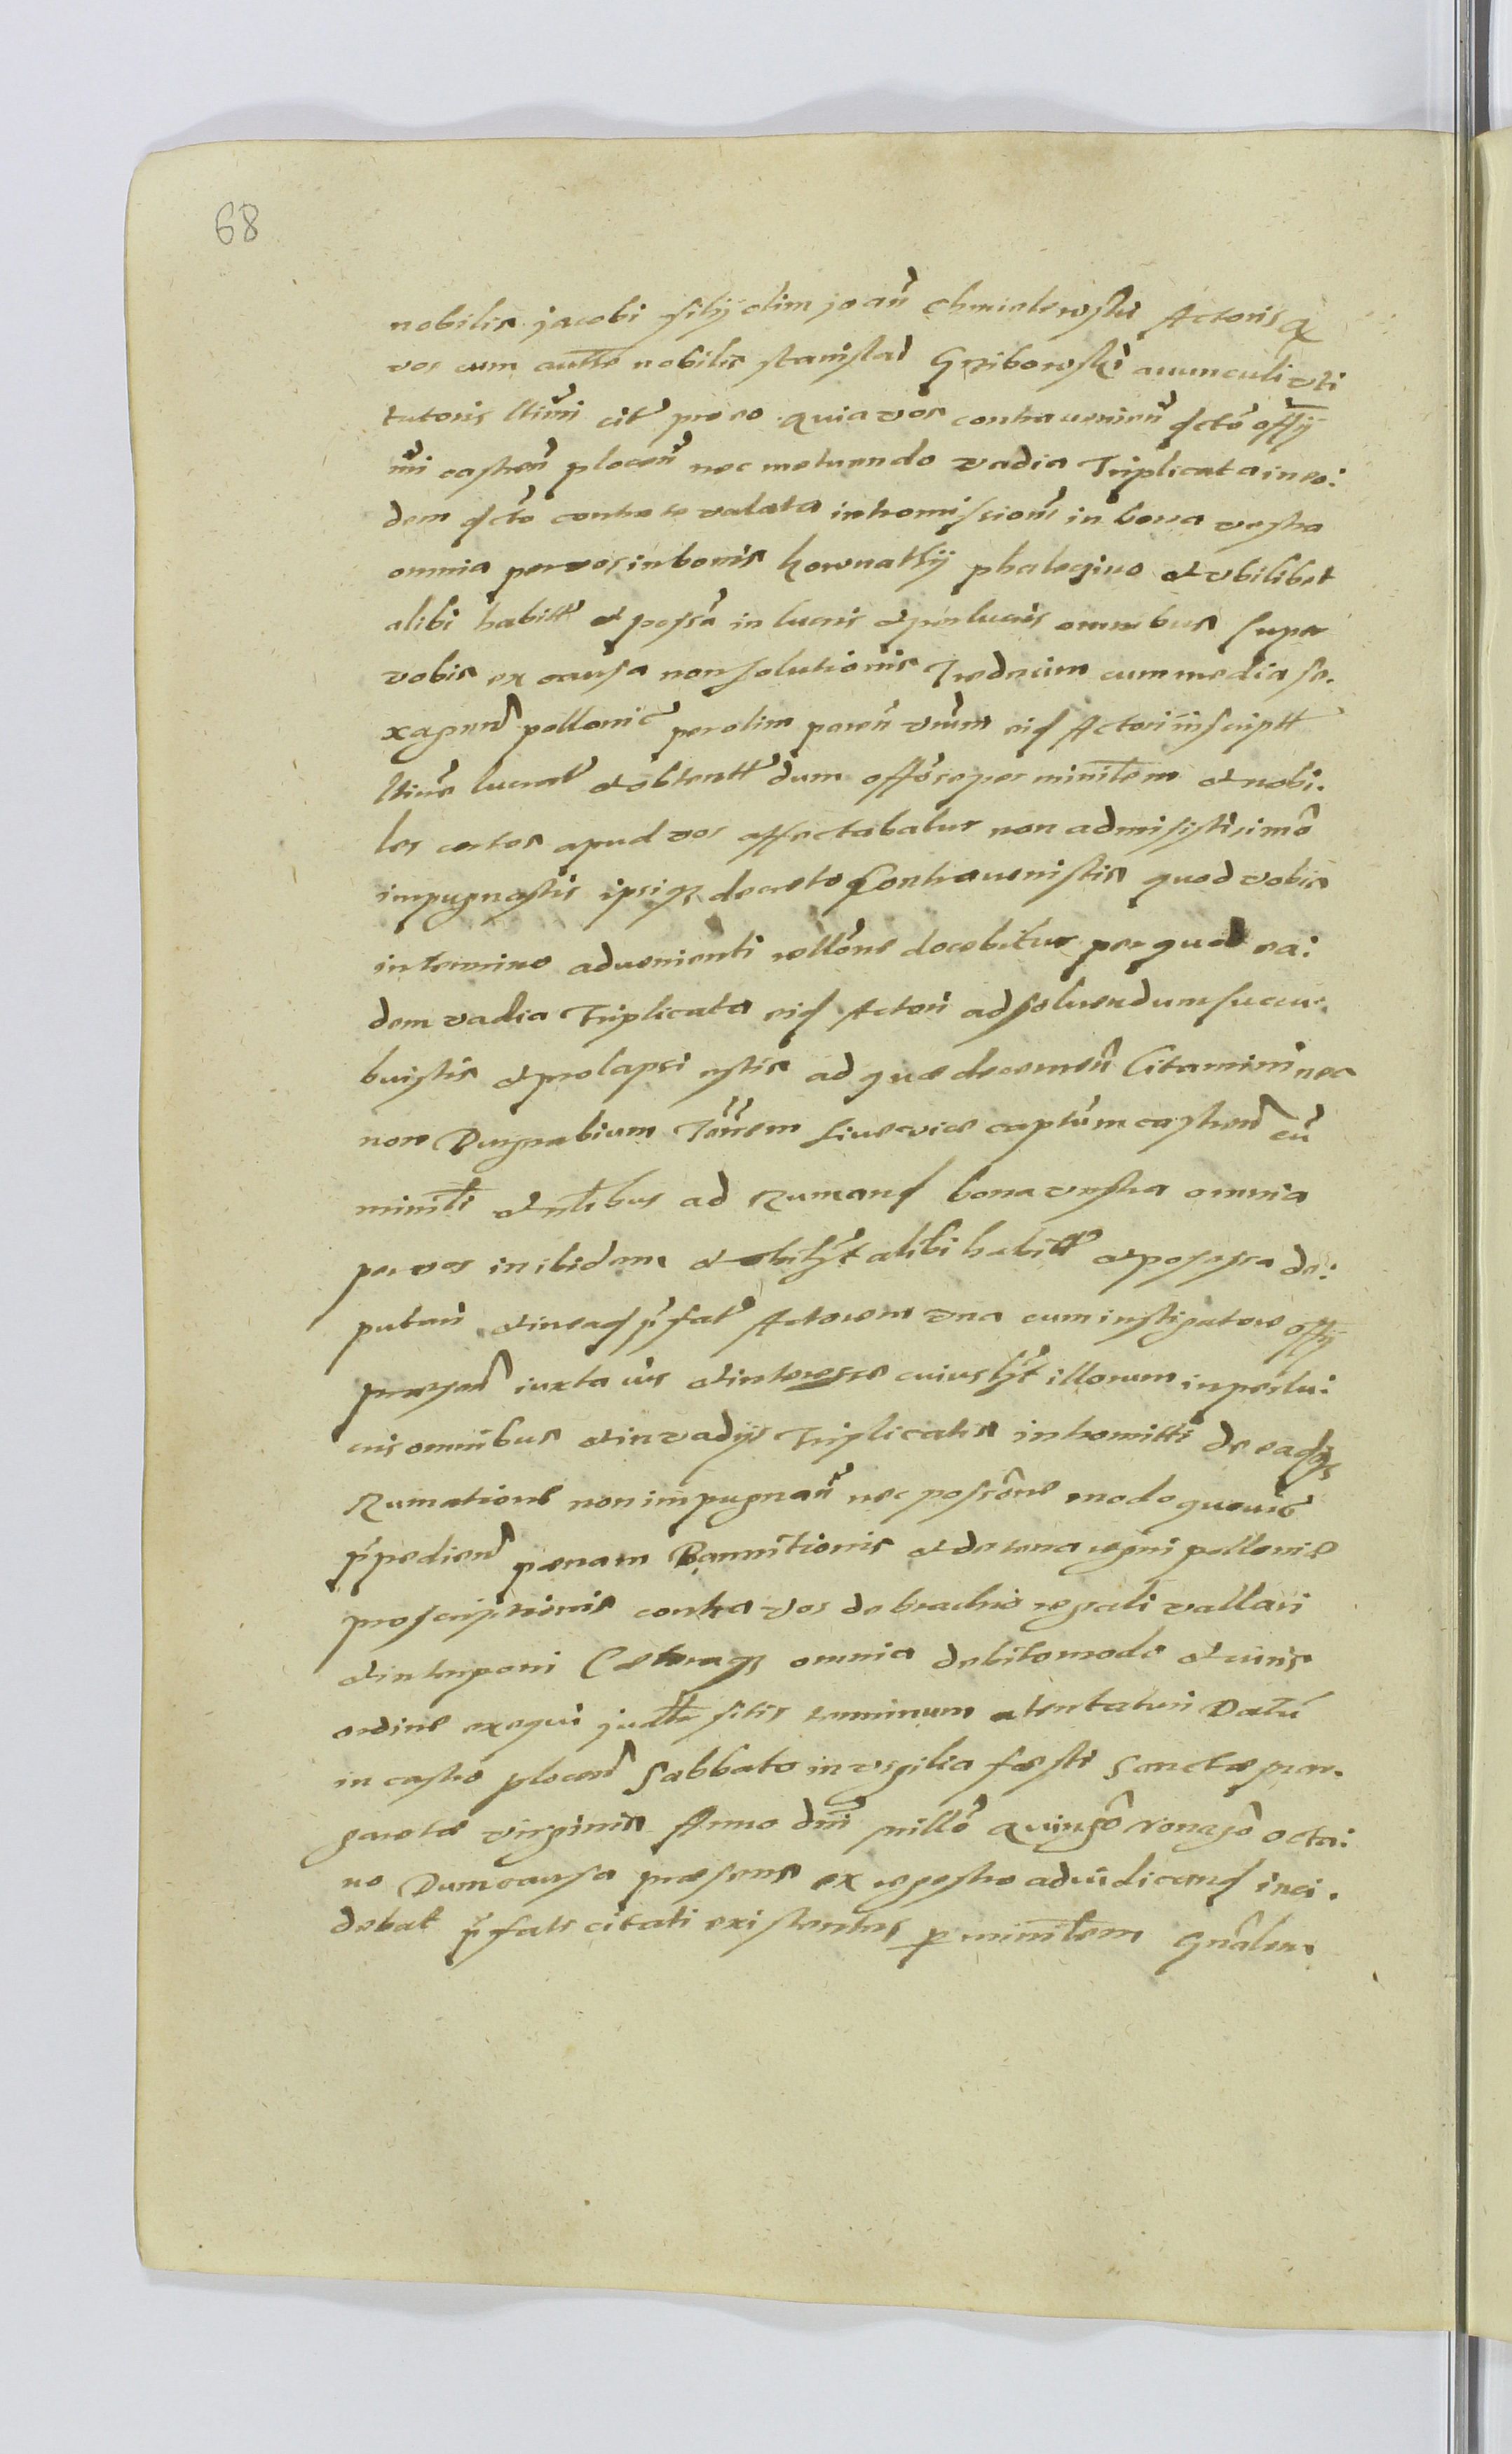 68
nobilis jacobi filij olim joan̄ Chmielewski Actoris q
vos cum auttē nobilis stanislai Grzibowski avunculi vti
tutoris lt̄imi cit̄ pro eo quia vos contravenien̄ dctō offij
n̄ri castren̄ plocen̄ nec metuendo vadia Triplicata in eo:
dem dcto contra te valata intromissionē in bona vestra
omnia per vos in bonis phalegino et vbilibet
alibi habitt̄ et possā in lucris et perlucris omnibus super
vobis ex causa non solutionis Tredecim cum media se.
xagen̄ pollonic̄ per olim paren̄ vrūm eid Actori inscriptt̄
ltime lucrat̄ et obtentt̄ dum offōse per ministlem et nobi.
les certos apud vos affectabatur non admisistis imō
impugnastis ipsiqȝ decreto Contravenistis quod vobis
in termino advenienti rellōne docebitur per quod ea:
dem vadia Triplicata eid Actori ad solvendum succu.
buistis et prolapsi estis ad quæ decernen̄ Citamini nec
non Terrem sive vice captūm castren̄ cū
ministli et nlibus ad Rumand bona vestra omnia
per vos inibidem et vbilȝt alibi habitt̄ et possessa de:
putari et in ead p̄fat̄ Actorem vna cum instigatore offij
præsen̄ iuxta ius et interesse cuiuslȝt illorum in perlu:
cris omnibus et in vadijs Triplicatis intromitti de eadqȝ
Rumatione non impugnan̄ nec possōne modo quovis
p̄pedien̄ pænam Bannitionis et de terra regni pollonie
proscriptionis contra vos de brachio regali vallari
et interponi Cæteraqȝ omnia debito modo et iuris
ordine exequi judtle sitis terminum attentaturi Datū
in castro plocen̄ Sabbato in vigilia fæsti Sanctæ mar.
garetæ virginis Anno dn̄i millō quingō nonagō octa:
vo Dum causa præsens ex regestro ad iudicand inci.
debat p̄fati citati existentes p ministlem Gn̄alem